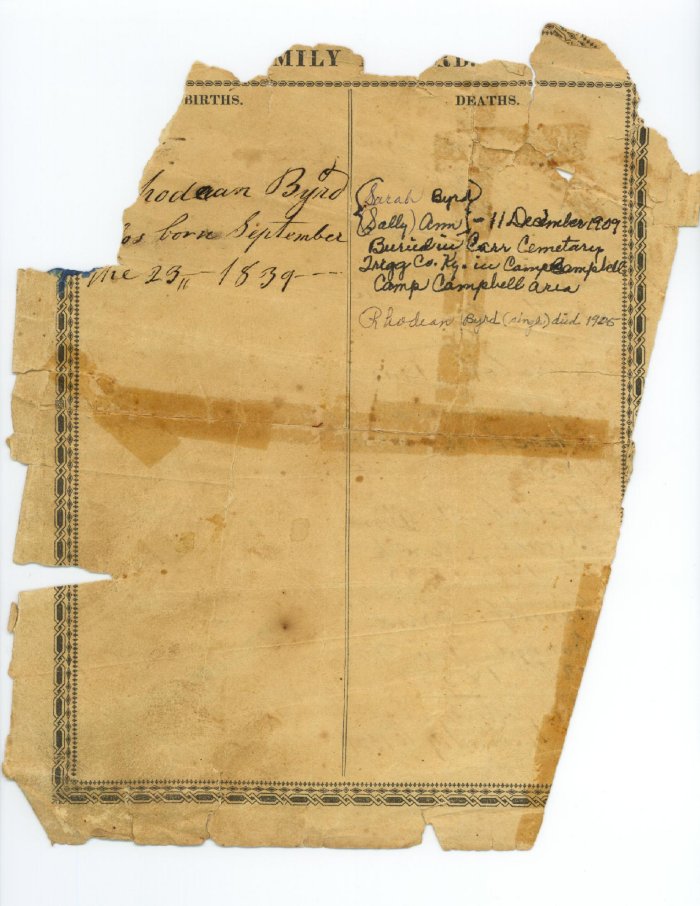 MILY RD.
BIRTHS.
hodean Byrd
as born September
the 23 1839
DEATHS.
(Sarah Byrd)
(Sally) Ann - 11 December 1909
Buried in Carr Cemetary
Trigg Co. Ky. in Camp Campbell
Camp Campbell area
Rhodean Byrd (single) died 1905